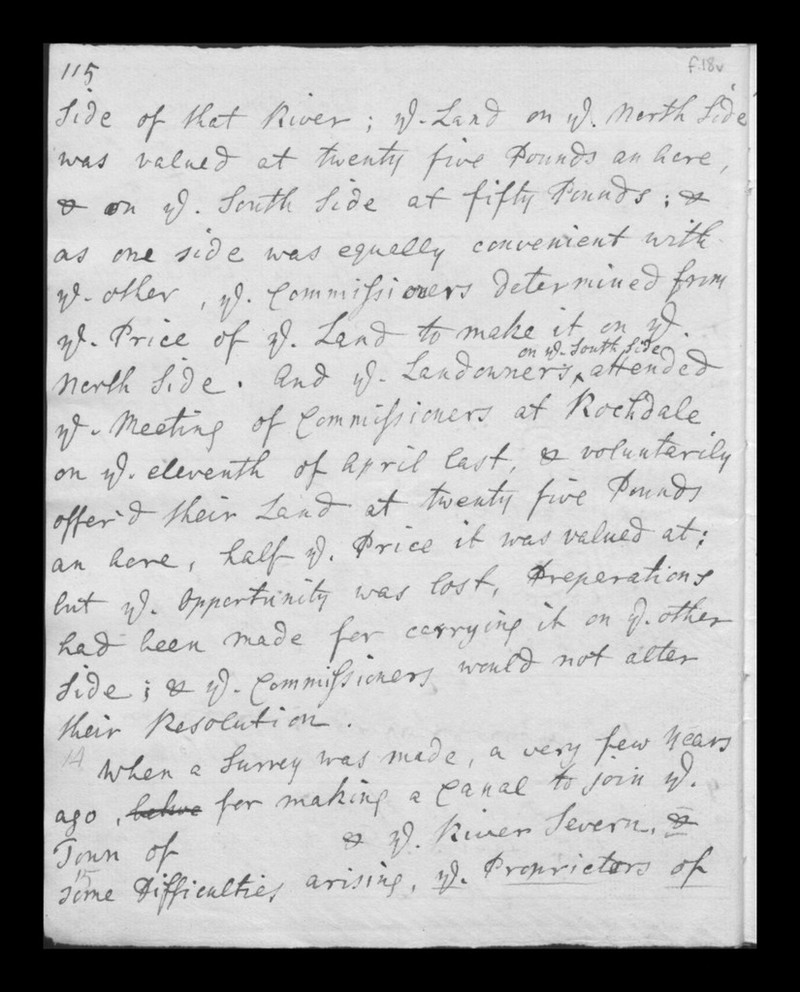 115
f.18v
Side of that River; ye. Land on ye. North Side
was valued at twenty five Pounds an Acre,
& on ye. South Side at fifty Pounds; &
as one side was equelly convenient with
ye. other, ye. Commissioners determined from
ye. Price of ye. Land to make it on ye.
on ye. South Side
North Side. And ye. Landowners ^ attended
ye. Meeting of Commissioners at Rochdale
on ye. eleventh of April last, & voluntarily
offer'd their Land at twenty five Pounds
an Acre, half ye. Price it was valued at;
but ye. Opportunity was lost, Preperations
had been made for carrying it on ye. other
Side; & ye. Commissioners would not alter
their Resolution.
14
When a Survey was made, a very few Years
ago, for making a Canal to join ye.
Town of & ye. River Severn, &
15
some Difficulties arising, ye. Proprietors of